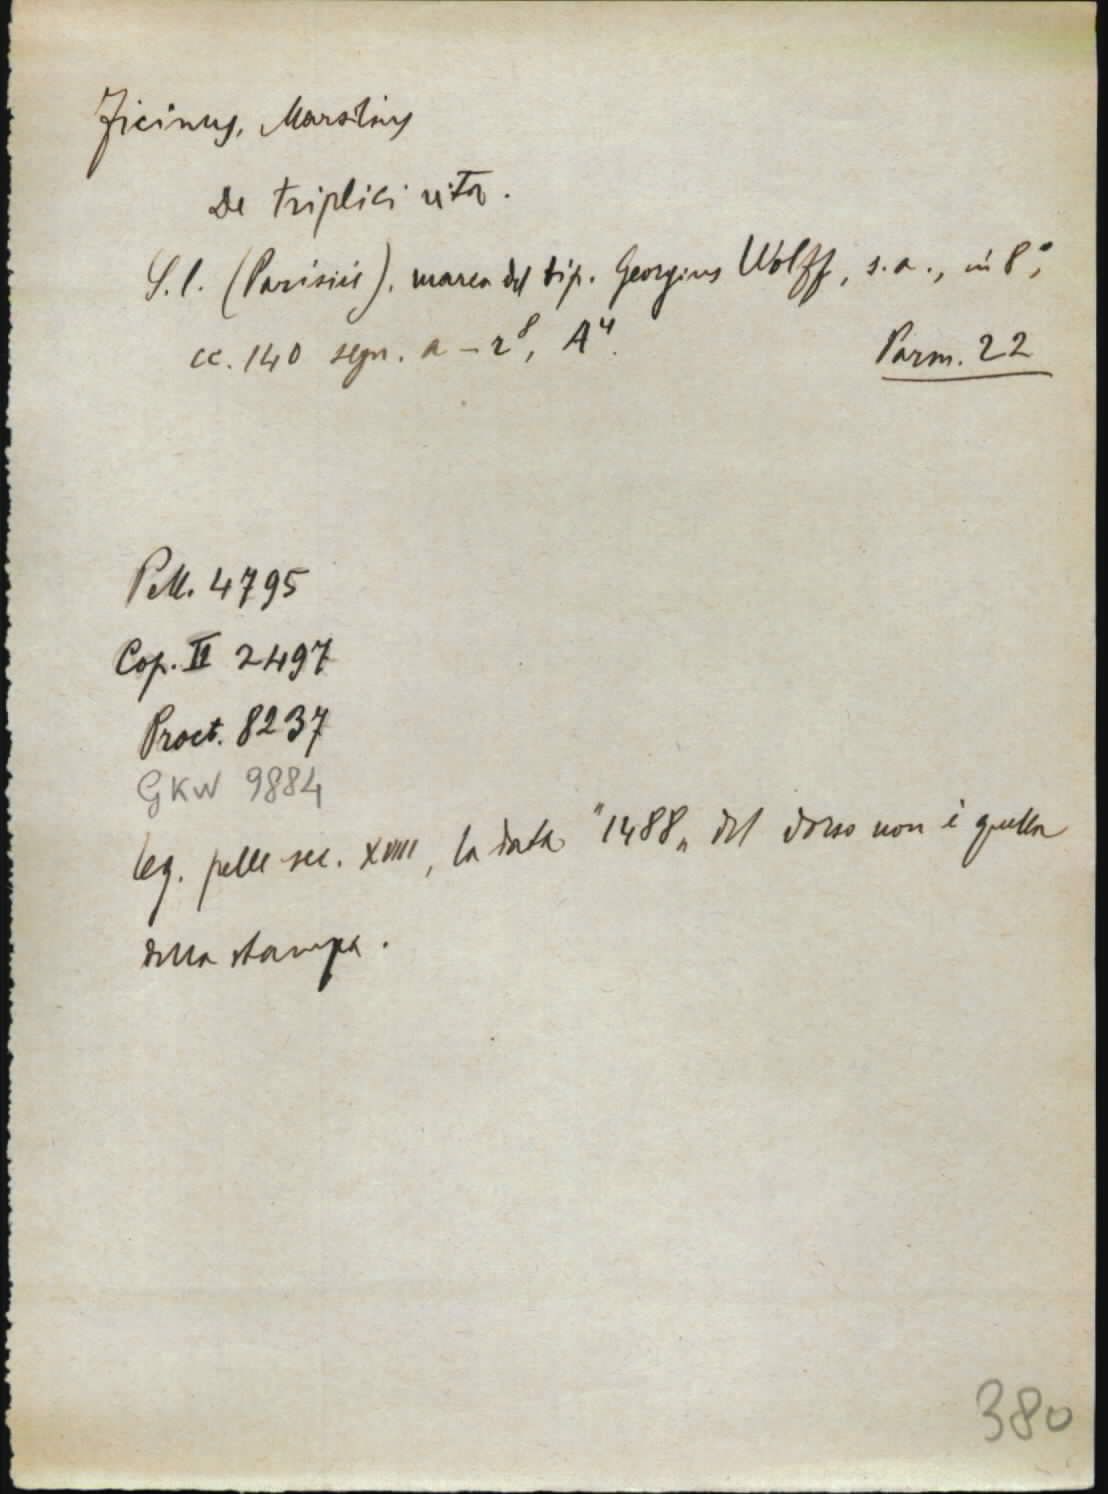 Ficinus, Marsilius
De triplici vita.
S.l. (Parisiis), marca del tip. Georgius Wolff, s.a., in 8°,
cc. 140 segn. a-r⁸, A⁴.
Parm. 22
Pell. 4795
Cop. II 2497
Proct. 8237
GKW 9884
leg. pelle sec. XVIII, la data "1488„ del dorso non è quella
della stampa.
380